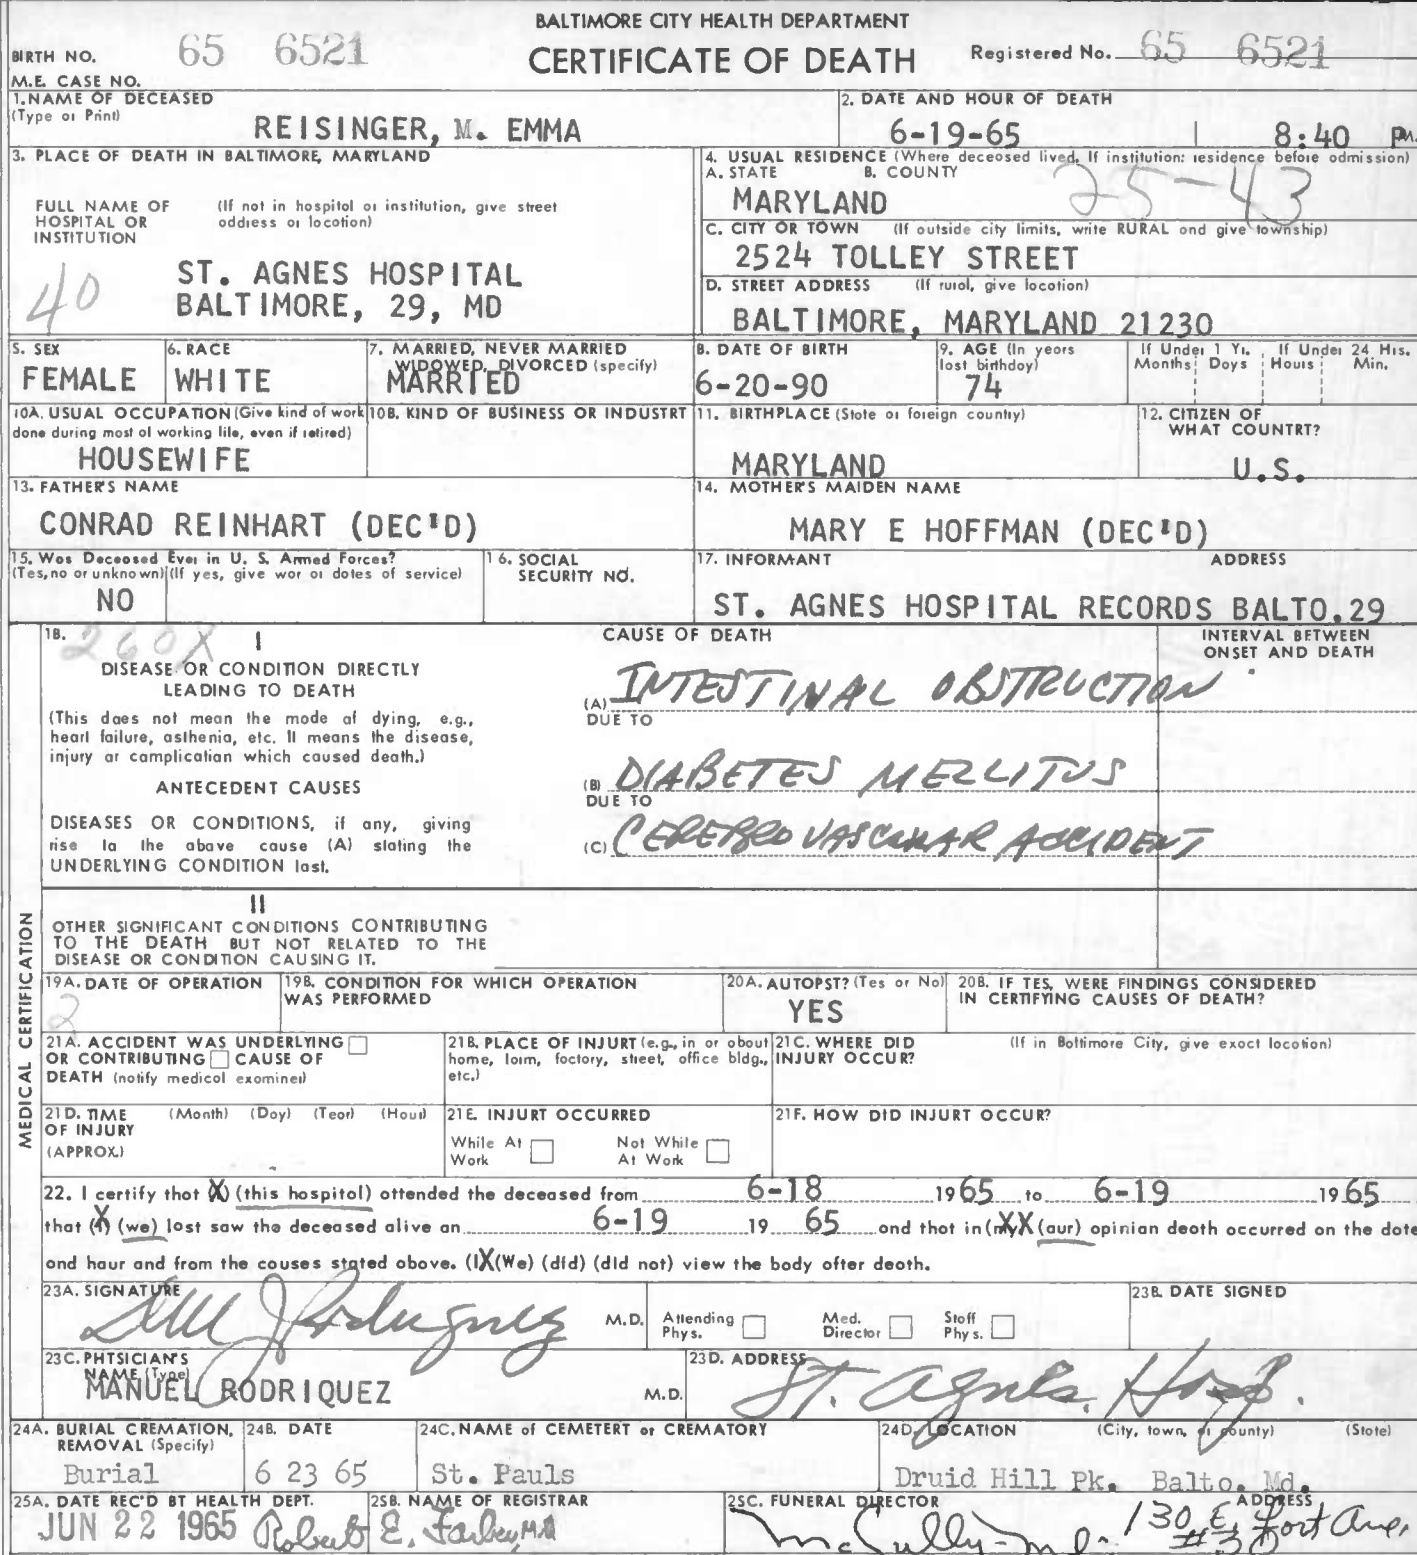 BALTIMORE CITY HEALTH DEPARTMENT
CERTIFICATE OF DEATH
BIRTH NO. 65 6521
Registered No. 65 6521
M.E. CASE NO.
1. NAME OF DECEASED
(Type or Print)
REISINGER, M. EMMA
2. DATE AND HOUR OF DEATH
6-19-65 | 8:40 PM.
3. PLACE OF DEATH IN BALTIMORE, MARYLAND
FULL NAME OF HOSPITAL OR INSTITUTION
(If not in hospital or institution, give street address or location)
40
ST. AGNES HOSPITAL
BALTIMORE, 29, MD
4. USUAL RESIDENCE (Where deceased lived. If institution: residence before admission)
A. STATE B. COUNTY
MARYLAND 25-43
C. CITY OR TOWN (If outside city limits, write RURAL and give township)
2524 TOLLEY STREET
D. STREET ADDRESS (If rural, give location)
BALTIMORE, MARYLAND 21230
5. SEX
FEMALE
6. RACE
WHITE
7. MARRIED, NEVER MARRIED
WIDOWED, DIVORCED (specify)
MARRIED
8. DATE OF BIRTH
6-20-90
9. AGE (In years last birthday)
74
If Under 1 Yr. If Under 24 Hrs.
Months Days Hours Min.
10A. USUAL OCCUPATION (Give kind of work
done during most of working life, even if retired)
HOUSEWIFE
10B. KIND OF BUSINESS OR INDUSTRY
11. BIRTHPLACE (State or foreign country)
MARYLAND
12. CITIZEN OF
WHAT COUNTRY?
U.S.
13. FATHER'S NAME
CONRAD REINHART (DEC'D)
14. MOTHER'S MAIDEN NAME
MARY E HOFFMAN (DEC'D)
15. Was Deceased Ever in U. S. Armed Forces?
(Yes, no or unknown) (If yes, give war or dates of service)
NO
16. SOCIAL
SECURITY NO.
17. INFORMANT ADDRESS
ST. AGNES HOSPITAL RECORDS BALTO.29
MEDICAL CERTIFICATION
18. 260X I
DISEASE OR CONDITION DIRECTLY
LEADING TO DEATH
(This does not mean the mode of dying, e.g.,
heart failure, asthenia, etc. It means the disease,
injury or complication which caused death.)
ANTECEDENT CAUSES
DISEASES OR CONDITIONS, if any, giving
rise to the above cause (A) stating the
UNDERLYING CONDITION last.
CAUSE OF DEATH
INTERVAL BETWEEN
ONSET AND DEATH
(A) INTESTINAL OBSTRUCTION
DUE TO
(B) DIABETES MELLITUS
DUE TO
(C) CEREBRO VASCULAR ACCIDENT
II
OTHER SIGNIFICANT CONDITIONS CONTRIBUTING
TO THE DEATH BUT NOT RELATED TO THE
DISEASE OR CONDITION CAUSING IT.
19A. DATE OF OPERATION
2
19B. CONDITION FOR WHICH OPERATION
WAS PERFORMED
20A. AUTOPSY? (Yes or No)
YES
20B. IF YES, WERE FINDINGS CONSIDERED
IN CERTIFYING CAUSES OF DEATH?
21A. ACCIDENT WAS UNDERLYING
OR CONTRIBUTING CAUSE OF
DEATH (notify medical examiner)
21B. PLACE OF INJURY (e.g., in or about
home, farm, factory, street, office bldg.,
etc.)
21C. WHERE DID (If in Baltimore City, give exact location)
INJURY OCCUR?
21D. TIME (Month) (Day) (Year) (Hour)
OF INJURY
(APPROX.)
21E. INJURY OCCURRED
While At Work Not While At Work
21F. HOW DID INJURY OCCUR?
22. I certify that X) (this hospital) attended the deceased from 6-18 1965 to 6-19 1965
that (I) (we) last saw the deceased alive on 6-19 19 65 and that in (my) XX (our) opinion death occurred on the date
and hour and from the causes stated above. (I X (We) (did) (did not) view the body after death.
23A. SIGNATURE
Rodriguez M.D.
Attending Phys. Med. Director Staff Phys.
23B. DATE SIGNED
23C. PHYSICIAN'S
NAME (Type)
MANUEL RODRIQUEZ M.D.
23D. ADDRESS
St. Agnes Hosp.
24A. BURIAL CREMATION,
REMOVAL (Specify)
Burial
24B. DATE
6 23 65
24C. NAME of CEMETERY or CREMATORY
St. Pauls
24D. LOCATION (City, town, or county) (State)
Druid Hill Pk. Balto. Md.
25A. DATE REC'D BY HEALTH DEPT.
JUN 22 1965
25B. NAME OF REGISTRAR
Robert E. Farber, M.D.
25C. FUNERAL DIRECTOR ADDRESS
McCully 130 E. Fort Ave.
#30